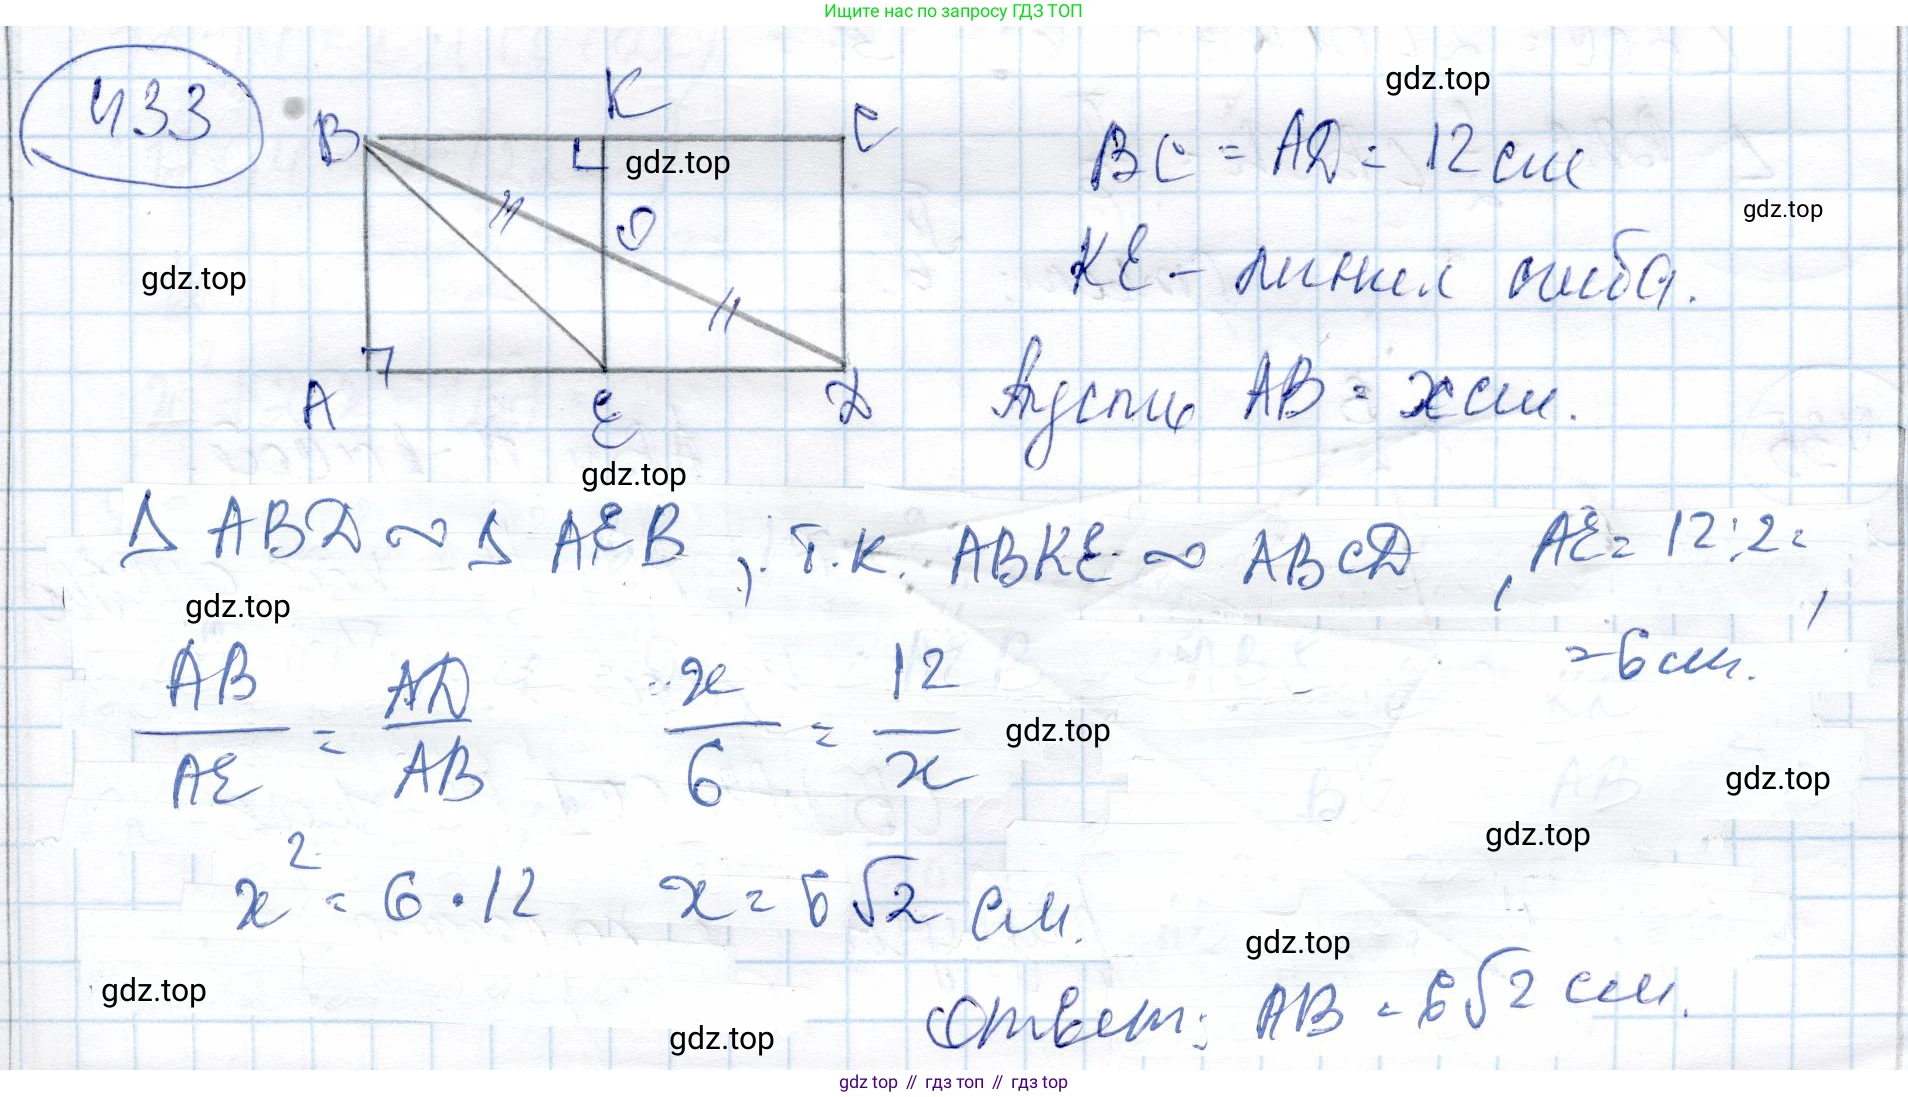 Ищите нас по запросу ГДЗ ТОП
433
B K C
gdz.top
gdz.top
O
A E D
gdz.top
gdz.top
BC = AD = 12 см
gdz.top
KE - линия сгиба.
Пусть AB = x см.
Δ ABD ~ Δ AEB, т.к. ABKE ~ ABCD, AE = 12:2 =
= 6 см.
gdz.top
AB/AE = AD/AB x/6 = 12/x
gdz.top
gdz.top
gdz.top
x² = 6 · 12 x = 6√2 см.
gdz.top
gdz.top
Ответ: AB = 6√2 см.
gdz.top
gdz top // гдз топ // гдз top